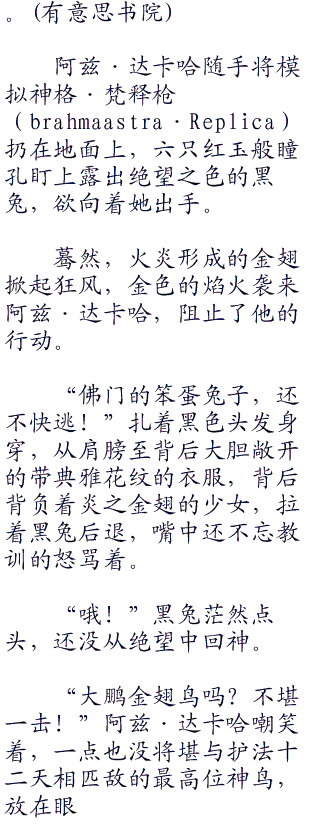 。(有意思书院)
阿兹·达卡哈随手将模
拟神格·梵释枪
（brahmaastra·Replica）
扔在地面上，六只红玉般瞳
孔盯上露出绝望之色的黑
兔，欲向着她出手。
蓦然，火炎形成的金翅
掀起狂风，金色的焰火袭来
阿兹·达卡哈，阻止了他的
行动。
“佛门的笨蛋兔子，还
不快逃！”扎着黑色头发身
穿，从肩膀至背后大胆敞开
的带典雅花纹的衣服，背后
背负着炎之金翅的少女，拉
着黑兔后退，嘴中还不忘教
训的怒骂着。
“哦！”黑兔茫然点
头，还没从绝望中回神。
“大鹏金翅鸟吗？不堪
一击！”阿兹·达卡哈嘲笑
着，一点也没将堪与护法十
二天相匹敌的最高位神鸟，
放在眼